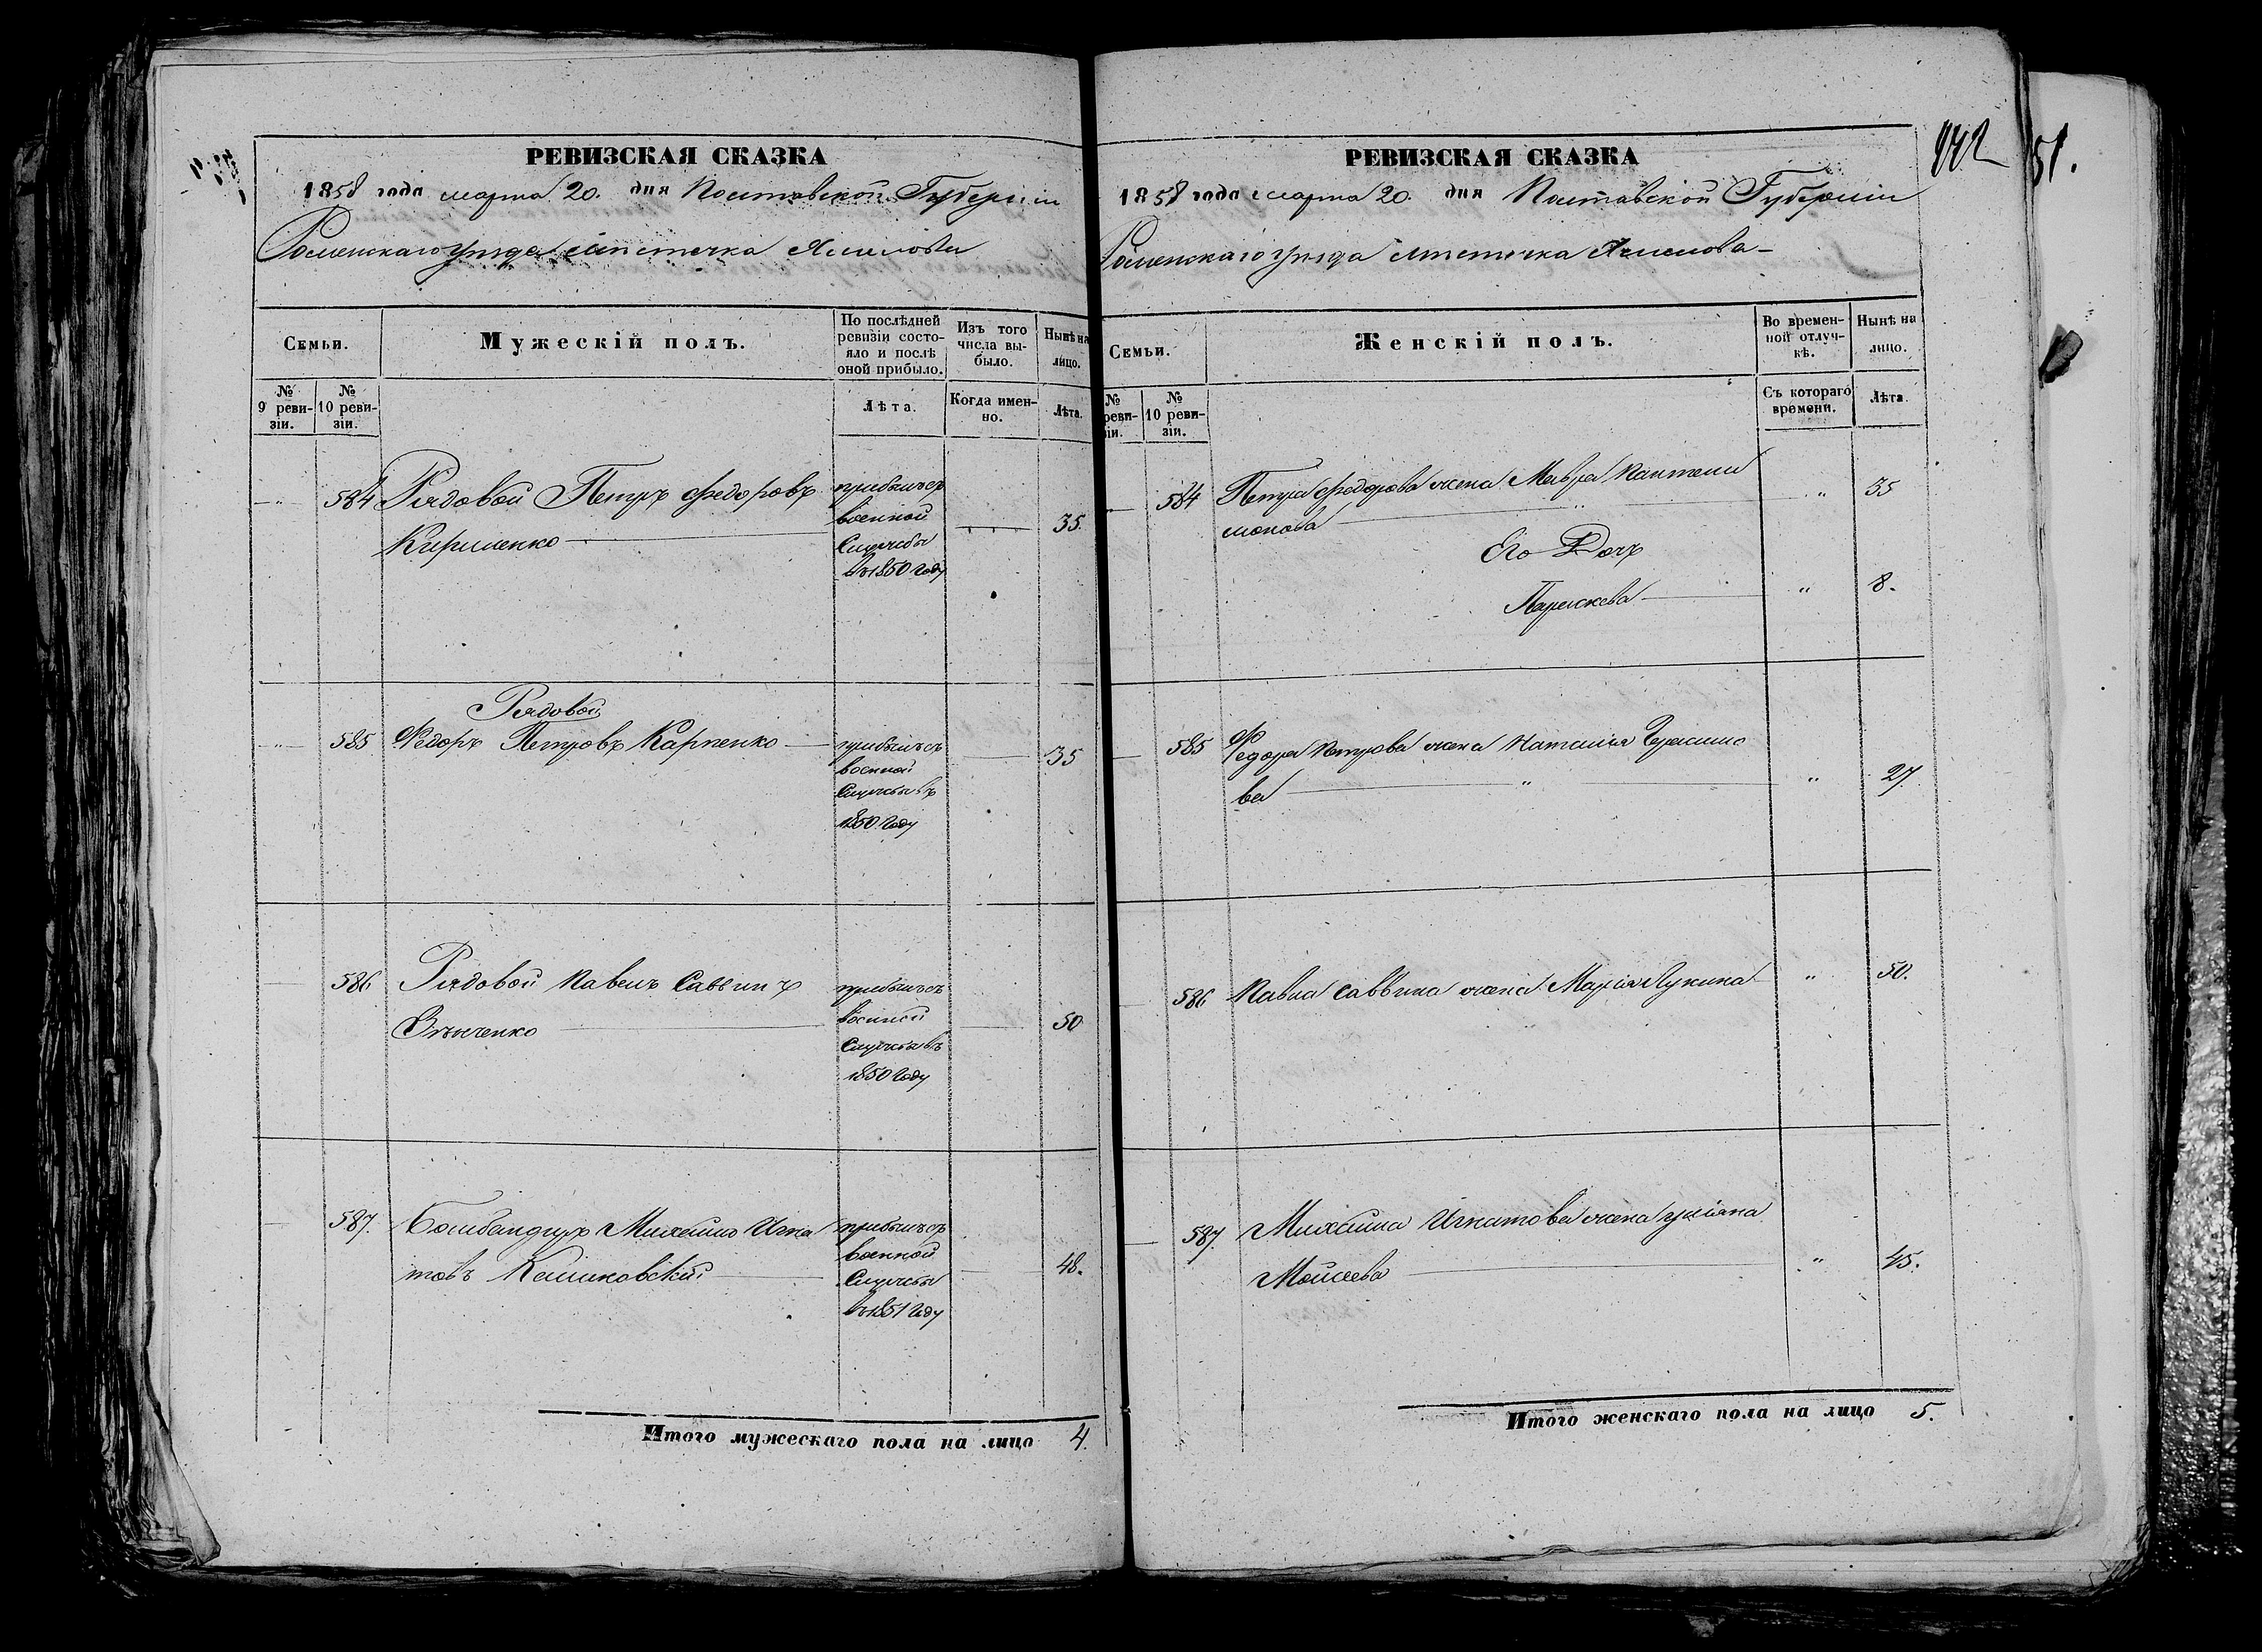 РЕВИЗСКАЯ СКАЗКА
1858 года марта 20. дня Полтавской Губерніи
Роменскаго уѣзда мѣстечка
Семьи.
Мужескій полъ.
По послѣдней ревизіи состояло и послѣ оной прибыло.
Изъ того числа выбыло.
Нынѣ на лицо.
№ 9 ревизіи.
№ 10 ревизіи.
Лѣта.
Когда именно.
Лѣта.
584 Рядовой Петръ Федоровъ
прибылъ съ
военной
35.
Кириленко
Службы
въ 1850 году
Рядовой
585 Федоръ Петровъ Карпенко
прибылъ съ
35
военной
Службы въ
1850 году
586 Рядовой Павелъ Саввинъ
прибылъ съ
военной
50
Службы въ
1850 году
587. Бомбандиръ Михаило Игна
прибылъ съ
военной
товъ
48.
Службы
въ 1851 году
Итого мужескаго пола на лицо 4.
142
51.
РЕВИЗСКАЯ СКАЗКА
1858 года марта 20. дня Полтавской Губерніи
Роменскаго уѣзда мѣстечка
Семьи.
Женскій полъ.
Во временной отлучкѣ.
Нынѣ на лицо.
№ реви-
зіи.
№ 10 ревизіи.
Съ котораго времени.
Лѣта.
584 Петра Федорова жена Мавра Пантели
" 35
монова
Его Дочь
Параскева " 8.
585 Федора Петрова жена Наталія Герасимо
ва " 27.
586 Павла Саввина жена Марія Лукина " 50.
587. Михаила Игнатова жена Уліяна
Моисеева " 45.
Итого женскаго пола на лицо 5.